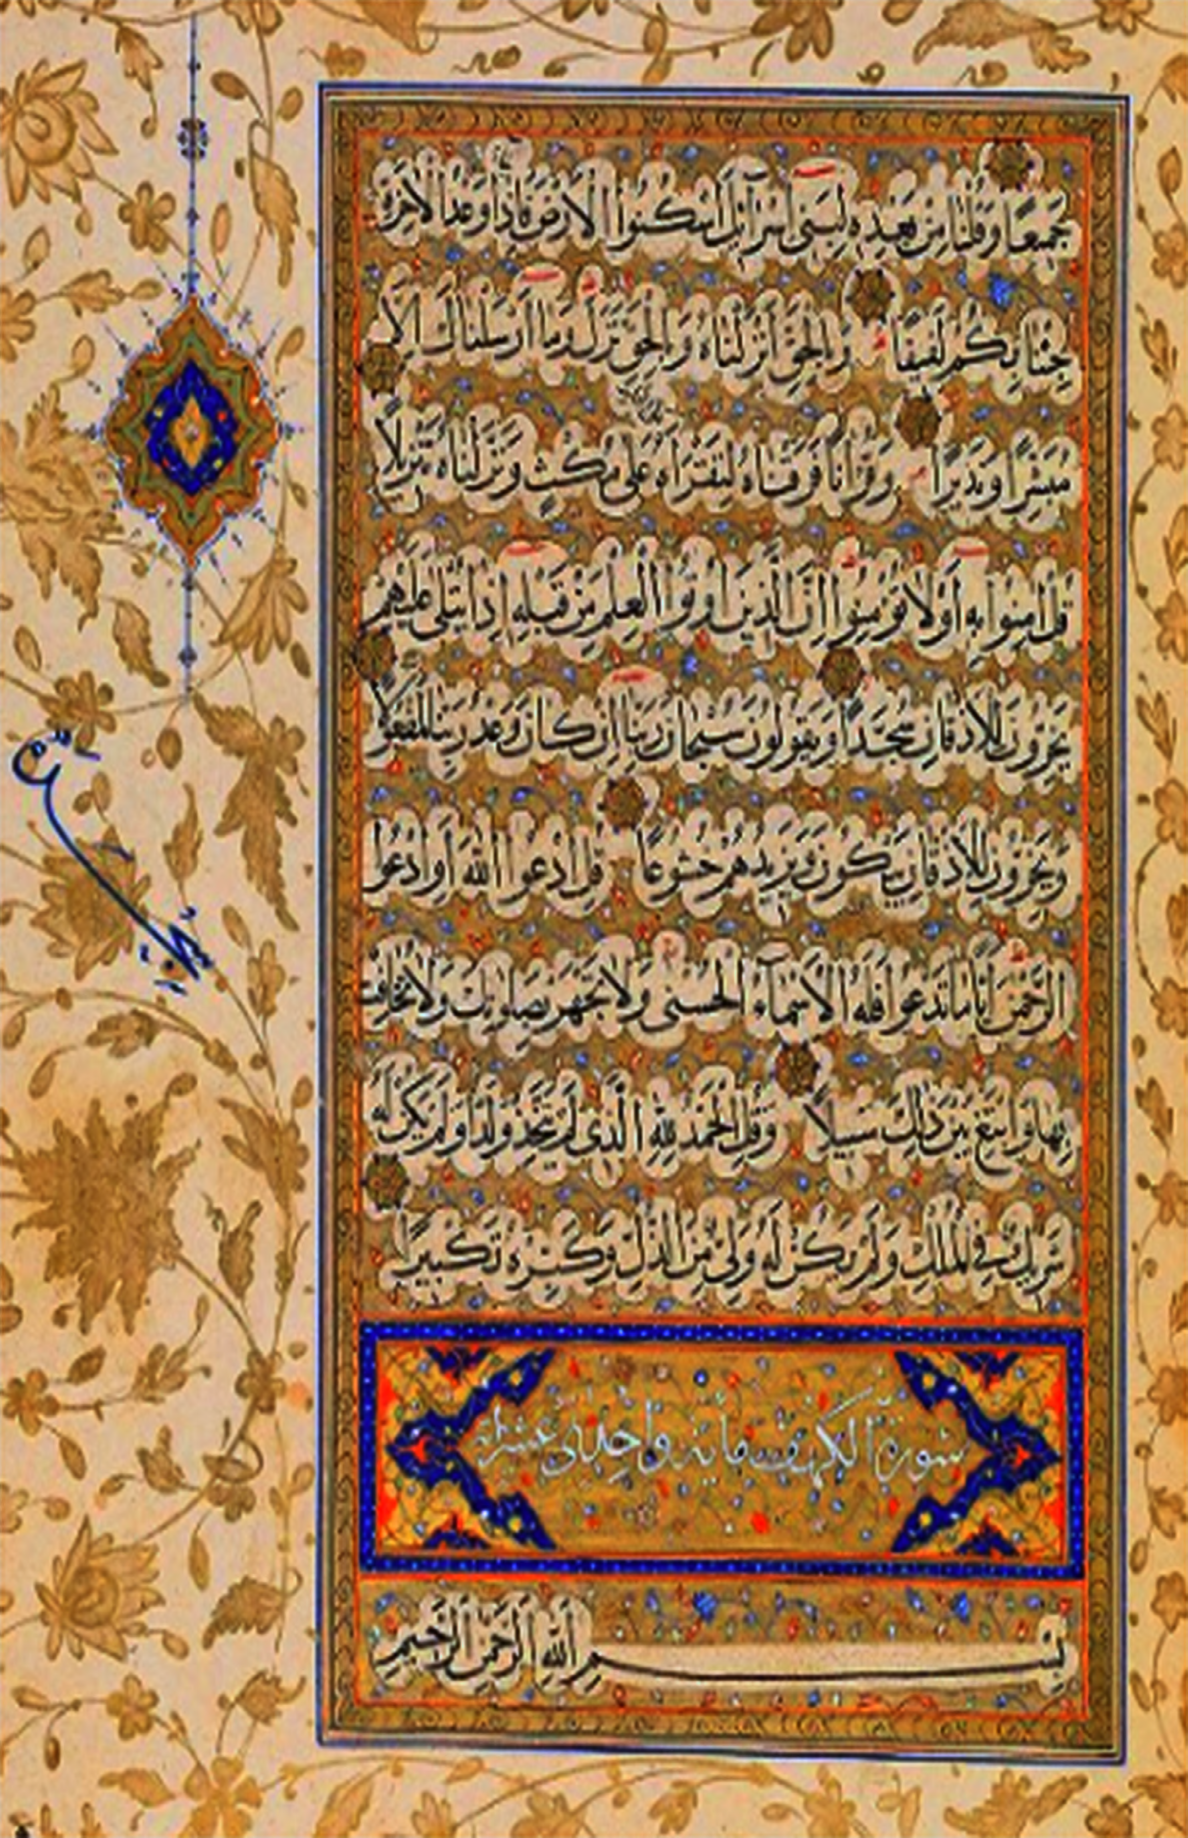 جَمِيعًا وَقُلْنَا مِنْ بَعْدِهِ لِبَنِى إِسْرَآئِلَ اسْكُنُوا الْأَرْضَ فَإِذَا وَعْدُ الْآخِرَةِ
جِئْنَا بِكُمْ لَفِيفًا وَبِالْحَقِّ أَنْزَلْنَاهُ وَبِالْحَقِّ نَزَلَ وَمَا أَرْسَلْنَاكَ إِلَّا
مُبَشِّرًا وَنَذِيرًا وَقُرْآنًا فَرَقْنَاهُ لِتَقْرَأَهُ عَلَى مُكْثٍ وَنَزَّلْنَاهُ تَنْزِيلًا
قُلْ آمِنُوا بِهِ أَوْ لَا تُؤْمِنُوا إِنَّ الَّذِينَ أُوتُوا الْعِلْمَ مِنْ قَبْلِهِ إِذَا يُتْلَى عَلَيْهِمْ
يَخِرُّونَ لِلْأَذْقَانِ سُجَّدًا وَيَقُولُونَ سُبْحَانَ رَبِّنَا إِنْ كَانَ وَعْدُ رَبِّنَا لَمَفْعُولًا
وَيَخِرُّونَ لِلْأَذْقَانِ يَبْكُونَ وَيَزِيدُهُمْ خُشُوعًا قُلِ ادْعُوا اللَّهَ أَوِ ادْعُوا
الرَّحْمَنَ أَيًّا مَا تَدْعُوا فَلَهُ الْأَسْمَاءُ الْحُسْنَى وَلَا تَجْهَرْ بِصَلَوتِكَ وَلَا تُخَافِتْ
بِهَا وَابْتَغِ بَيْنَ ذَلِكَ سَبِيلًا وَقُلِ الْحَمْدُ لِلَّهِ الَّذِى لَمْ يَتَّخِذْ وَلَدًا وَلَمْ يَكُنْ لَهُ
شَرِيكٌ فِى الْمُلْكِ وَلَمْ يَكُنْ لَهُ وَلِىٌّ مِنَ الذُّلِّ وَكَبِّرْهُ تَكْبِيرًا
سورة الكهف مایة واحدى عشر
بِسْمِ اللَّهِ الرَّحْمَنِ الرَّحِيمِ